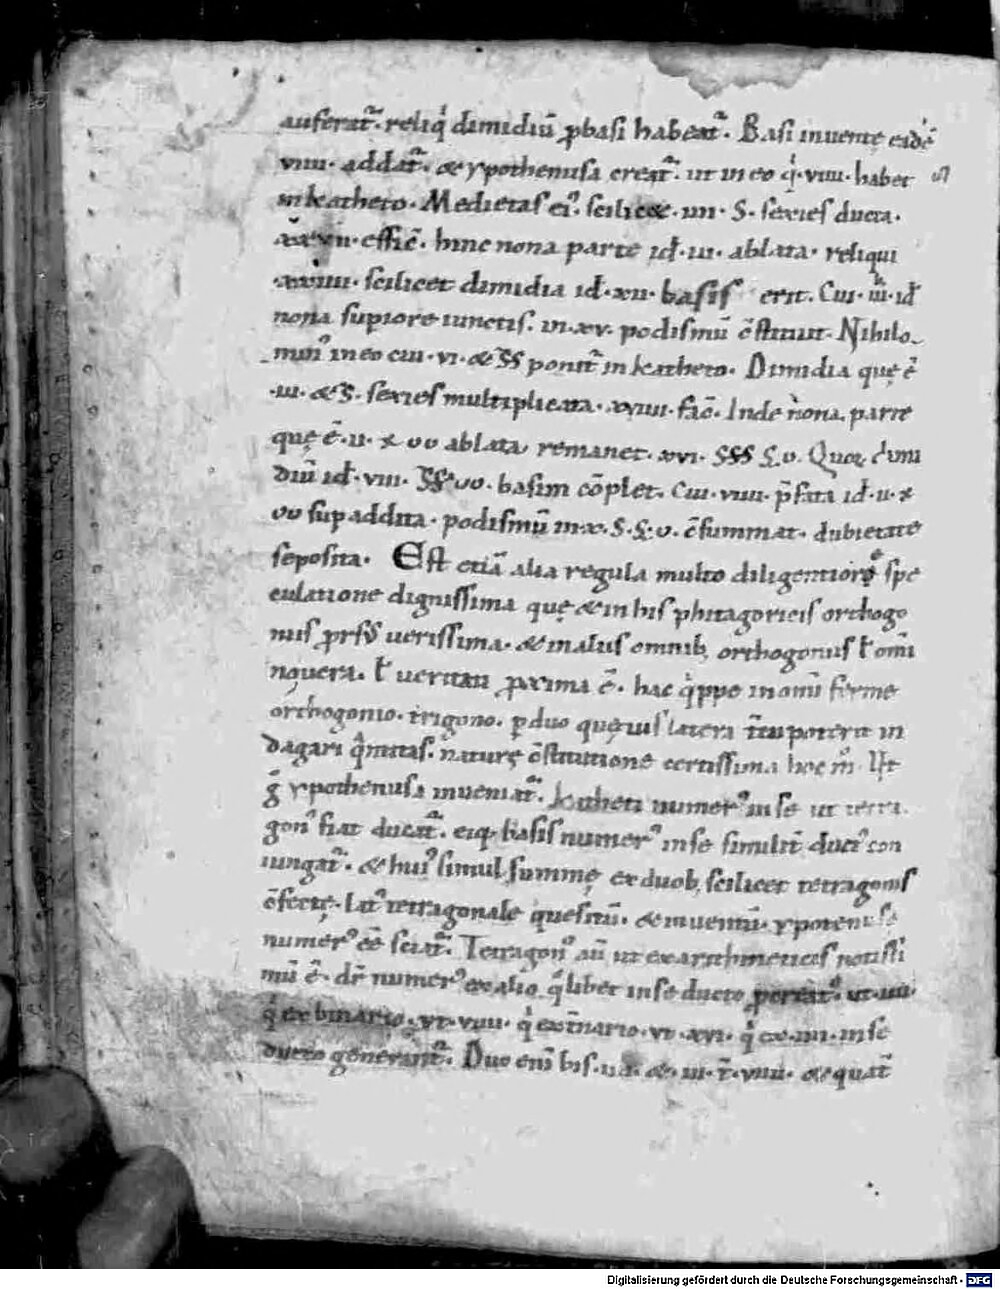 auferat᷑. reliq̍ dimidiū ꝑ basi habeat᷑. Basi inuentę eidē
viiii. addat᷑. & ypothenusa creat᷑. ut in eo q̍ .viiii. habet
in katheto. Medietas ei᷒. scilicet .iiii. S. sexies ducta.
xxvii. effic̄. hinc nona parte id̄ .iii. ablata. reliqui
xxiiii. scilicet dimidia id̄ .xii. basis erit. Cui .iii. id̄
nona supiore iunctis. in .xv. podismū c̄stituit. Nihilo
min᷒ in eo cui .vi. & ponit᷑ in katheto. Dimidia quę ē
.iii. & sexies multiplicata .xviiii. fac̄. Inde nona parte
quę ē .ii. & ablata remanet .xvi. Quoꝝ dimi
diū id̄ .viii. basim cōplet. Cui .viiii. p̄fata id̄ .ii. &
supaddita. podismū in .x. c̄summat. dubietate
seposita. Est etiā alia regula multo diligentiore spe
culatione dignissima quę & in his phitagoricis orthogo
niis prorsus uerissima. & in aliis omnib; orthogoniis
uera. ueritati ꝓxima ē. hac q̍ppe in omni ferme
orthogonio. trigono. ꝑ duo quęuis latera t̄tiū poterit in
dagari q̄ntitas. naturę c̄stitutione certissima hoc m̊. Ut
g̊ ypothenusa inueniat᷑. katheti numer᷒ in se ut tetra
gon᷒ fiat ducat᷑. eiq; basis numer᷒ in se similit̄ duct᷒ con
iungat᷑. & hui᷒ simul summę ex duob; scilicet tetragonis
c̄fectę. lat᷒ tetragonale quesitū. & inuentū. ypotenusę
numer᷒ eē sciat᷑. Tetragon᷒ aū ut ex arithmeticis notissi
mū ē. dr̄ numer᷒ ex alio q̊libet in se ducto ut .iiii.
q̍ ex binario. ut .viiii. q̍ ex t̄nario. ut .xvi. q̍ ex .iiii. in se
ducto generant᷑. Duo enī bis .ii. & .iii. t̄ .viiii. & quat᷑